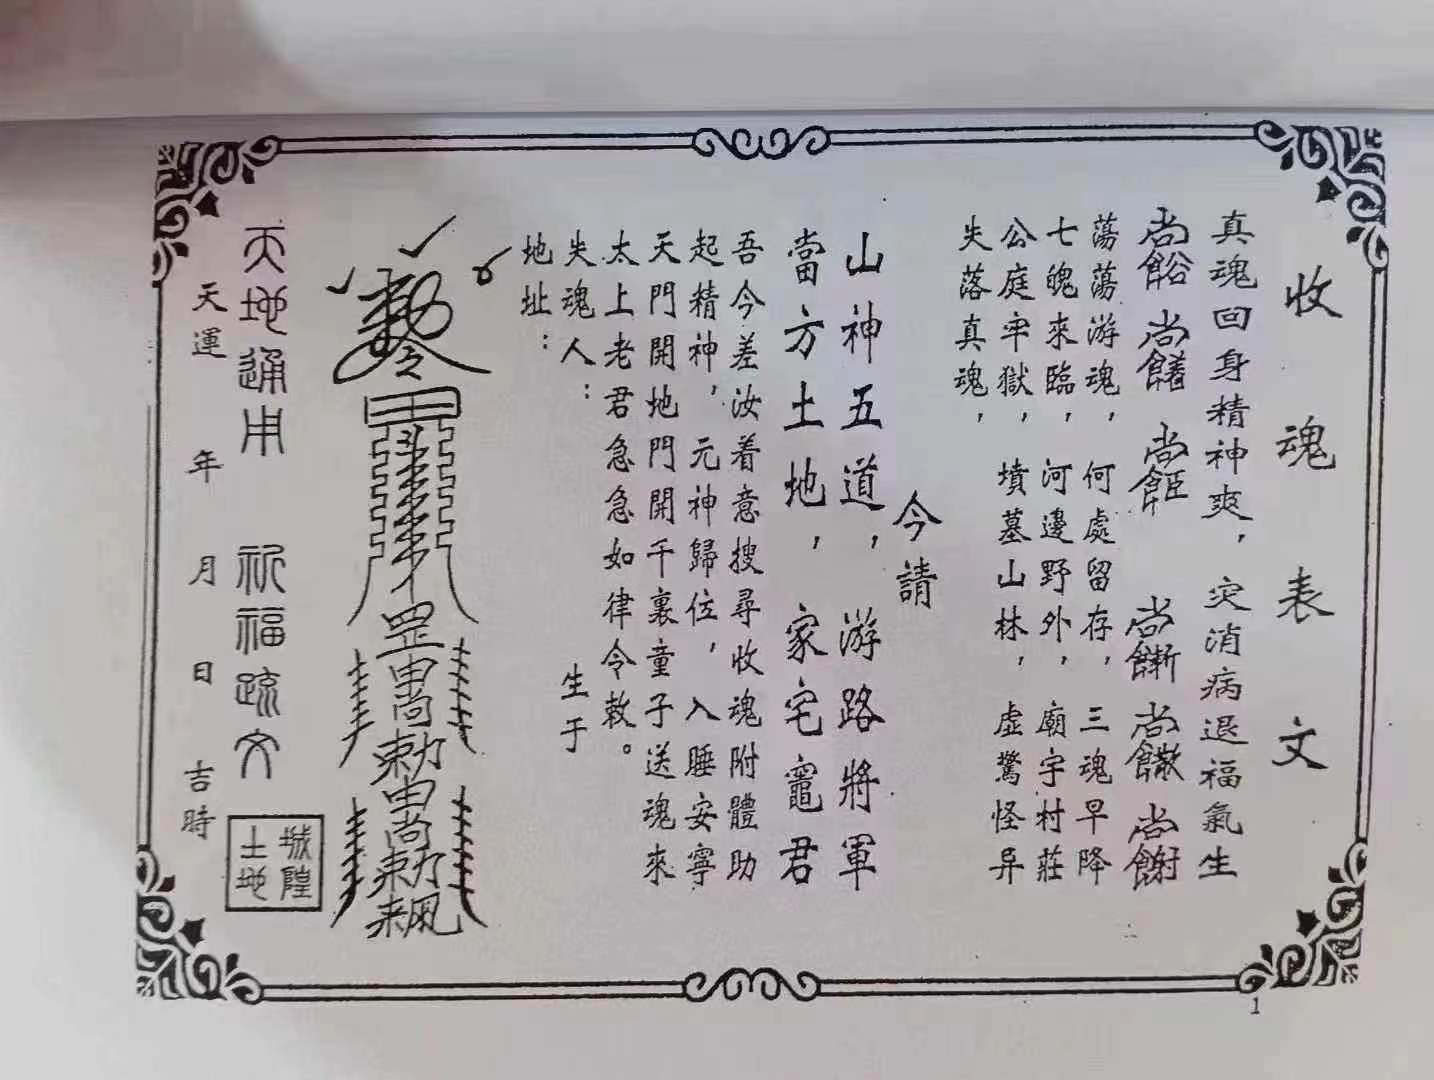 收魂表文
真魂回身精神爽，灾消病退福氣生
蕩蕩游魂，何處留存，三魂早降
七魄來臨，河邊野外，廟宇村莊
公庭牢獄，墳墓山林，虛驚怪异
失落真魂，
今請
山神五道，游路將軍
當方土地，家宅竈君
吾今差汝着意搜尋收魂附體助
起精神，元神歸位，入睡安寧
天門開地門開千裏童子送魂來
太上老君急急如律令敕。
失魂人： 生于
地址：
敕令
罡
天地通用 祈福疏文
城隍
土地
天運 年 月 日 吉時
1